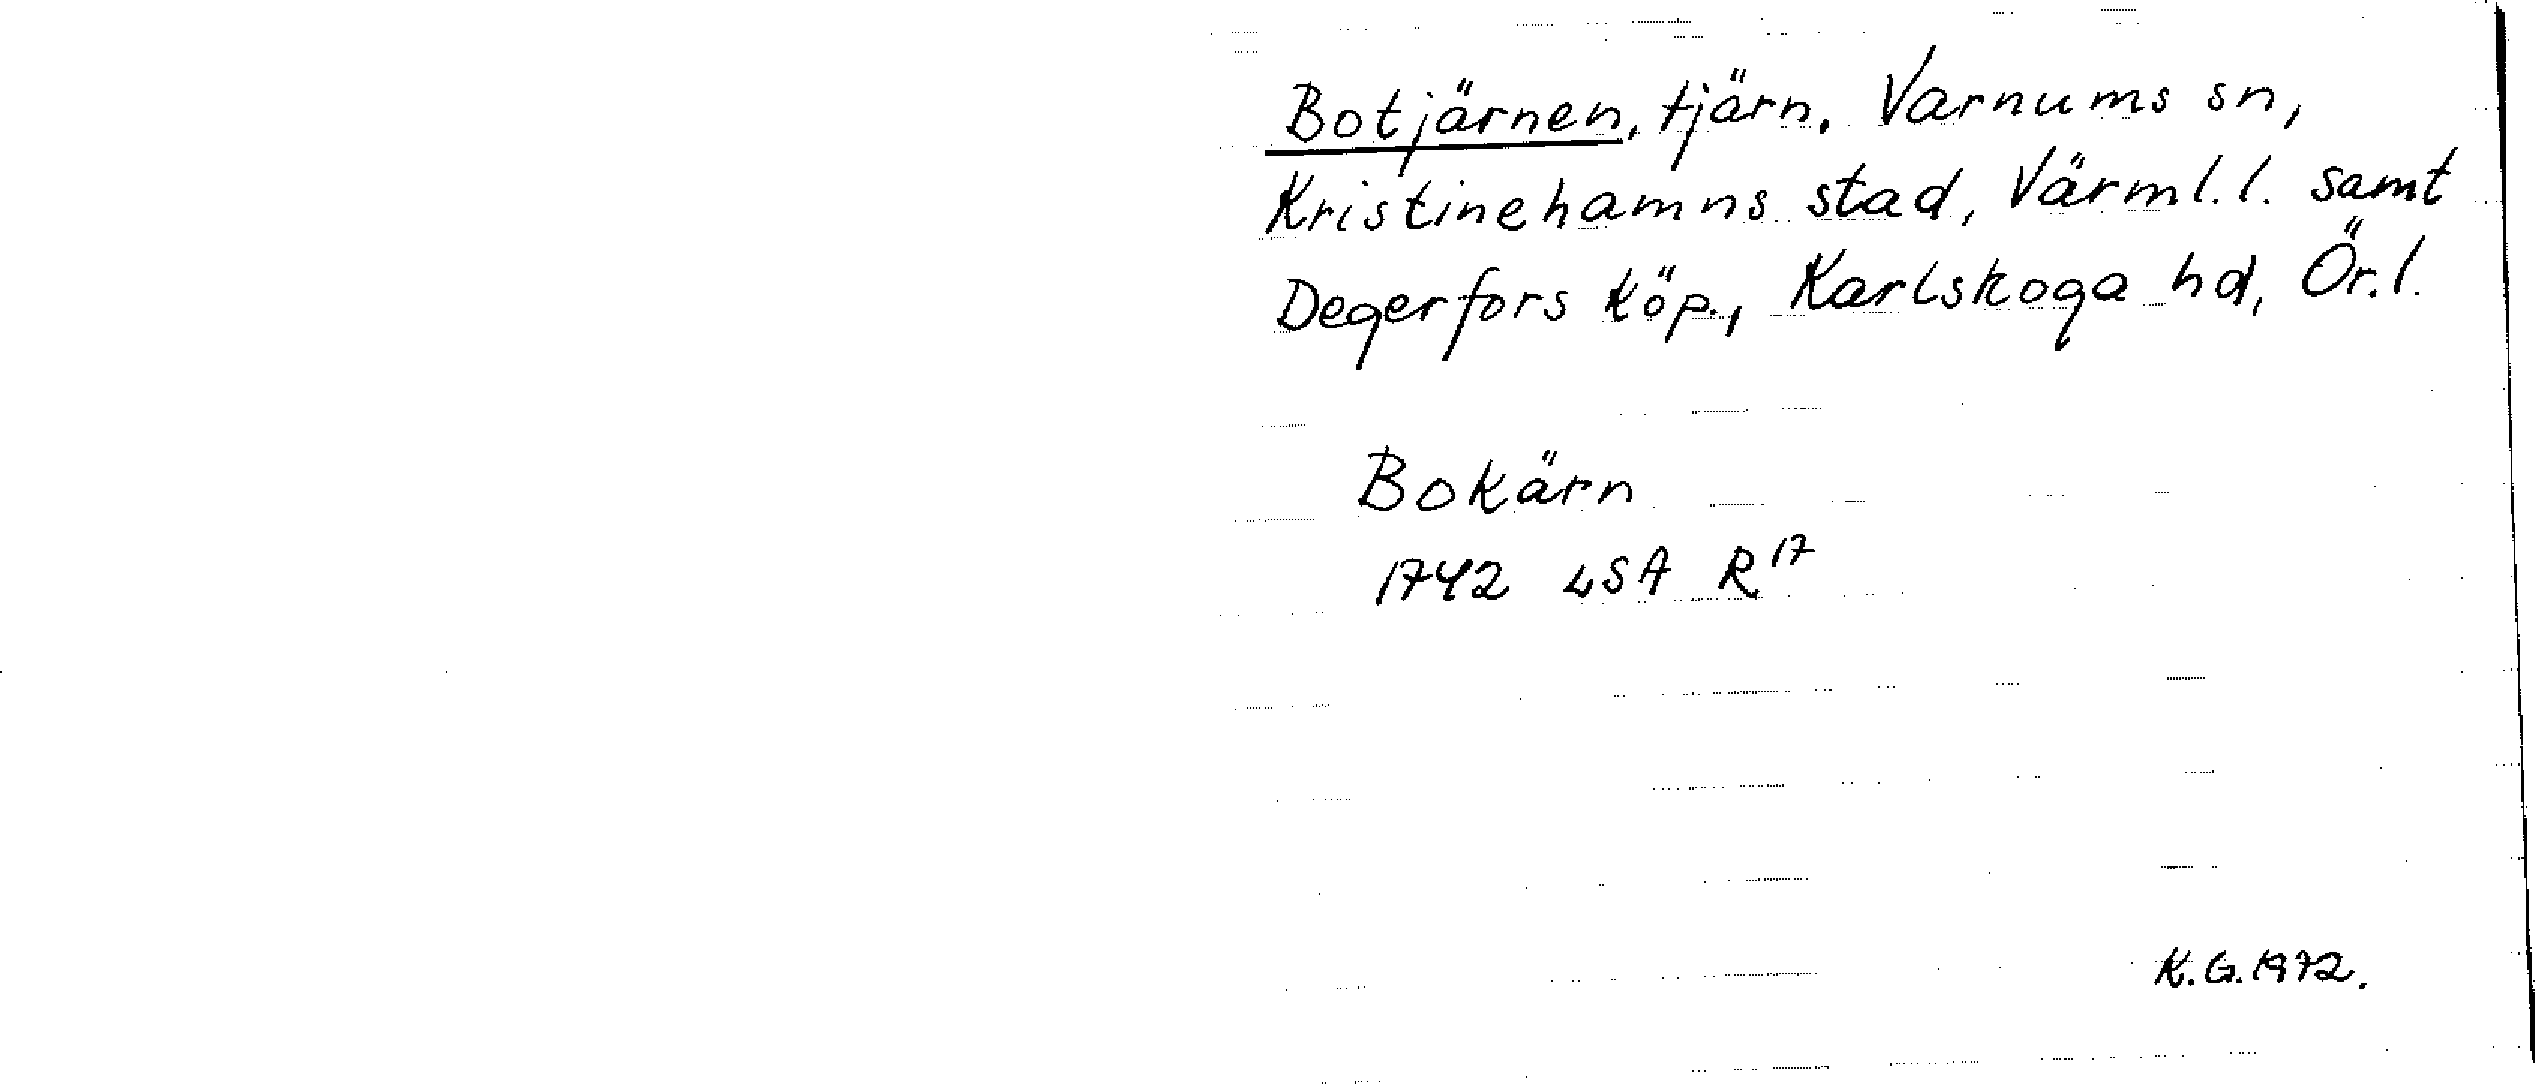 Botjärnen, tjärn, Varnums sn,
Kristinehamns stad, Värml. l. samt
Degerfors köp., Karlskoga hd, Ör. l.
Bokärn
1742 LSA R17
K.G. 1972.